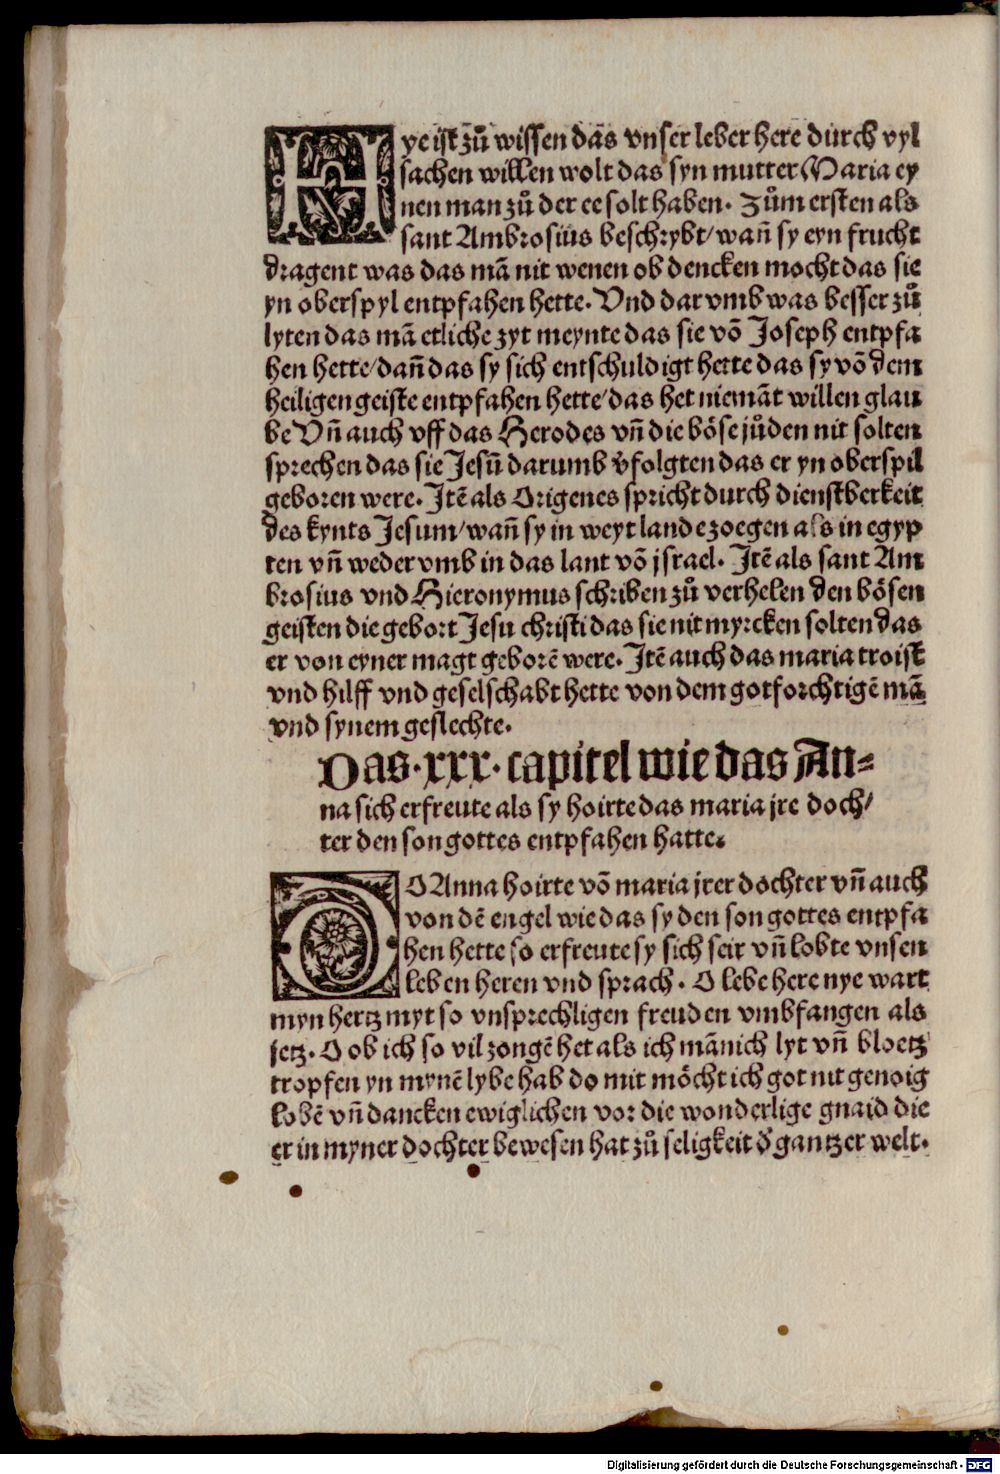 Hye ist zů wissen das vnser leber here durch vyl
sachen willen wolt das syn mutter Maria ey
nen man zů der ee solt haben. Zům ersten als
sant Ambrosius beschrybt/ wañ sy eyn frucht
dragent was das mã nit wenen ob dencken mocht das sie
yn oberspyl entpfahen hette. Vnd dar vmb was besser zů
lyten das mã etliche zyt meynte das sie võ Joseph entpfa
hen hette/ dañ das sy sich entschuldigt hette das sy võ dem
heiligen geiste entpfahen hette/ das het niemãt willen glau
be Vñ auch vff das Herodes vñ die böse jůden nit solten
sprechen das sie Jesũ darumb v̄folgten das er yn oberspil
geboren were. Jtẽ als Origenes spricht durch dienstberkeit
des kynts Jesum/ wañ sy in weyt lande zoegen als in egyp
ten vñ weder vmb in das lant võ jsrael. Jtẽ als sant Am
brosius vnd Hieronymus schriben zů verhelen den bösen
geisten die gebort Jesu christi das sie nit myrcken solten das
er von eyner magt geborẽ were. Jtẽ auch das maria troist
vnd hilff vnd geselschabt hette von dem gotforchtigẽ mã
vnd synem geslechte.
Das .xxx. capitel wie das An=
na sich erfreute als sy hoirte das maria jre doch/
ter den son gottes entpfahen hatte.
DO Anna hoirte võ maria jrer dochter vñ auch
von dẽ engel wie das sy den son gottes entpfa
hen hette so erfreute sy sich seir vñ lobte vnsen
leben heren vnd sprach. O lebe here nye wart
myn hertz myt so vnsprechligen freuden vmbfangen als
jetz. O ob ich so vil zongẽ het als ich mãnich lyt vñ bloetz
tropfen yn mynẽ lybe hab do mit möcht ich got nit genoig
lobẽ vñ dancken ewiglichen vor die wonderlige gnaid die
er in myner dochter bewesen hat zů seligkeit d̊ gantzer welt.
Digitalisierung gefördert durch die Deutsche Forschungsgemeinschaft - DFG